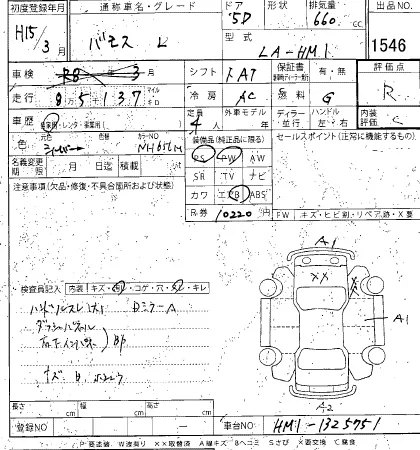 初度登録年月 通称車名・グレード ドア 形状 排気量 出品NO
H15/3月 バモス L 5D 660cc 1546
型式 LA-HM1
車検 R8年3月 シフト FAT 保証書 有・無 評価点 R
走行 85137 マイル キロ 冷房 AC 燃料 G 内装評価 C
車歴 自家用・レンタ・事業用 定員 4人 外車モデル 年 ディーラー・並行 ハンドル 左・右
色 元色 シルバー 色替 カラーNO NH651M 装備品(純正品に限る) セールスポイント(正常に機能するもの)
名義変更期限 月 日迄 積載 PS PW AW
注意事項(欠品・修復・不具合箇所および状態) SR TV ナビ
カワ エアB ABS
R券 10220円 FW キズ・ヒビ割・リペア跡・X要
検査員記入 内装!キズ・汚れ・コゲ・穴・スレ・キレ
ハンドルスレ大 DミラーA
ダッシュパネル
A1
XX
X
A1
A2
長さ cm 幅 cm 高さ cm
登録NO 車台NO HM1-1325751
P要塗装 W波有り XX取替済 A線キズ Bヘコミ Sさび X要交換 C腐食